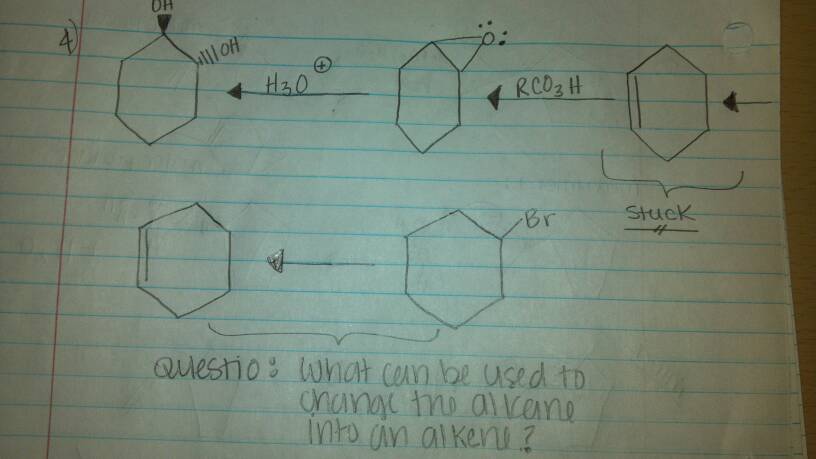 4)
OH
OH
H3O ⊕
:O:
RCO3H
Stuck
Br
Questio: What can be used to
change the alkane
into an alkene?